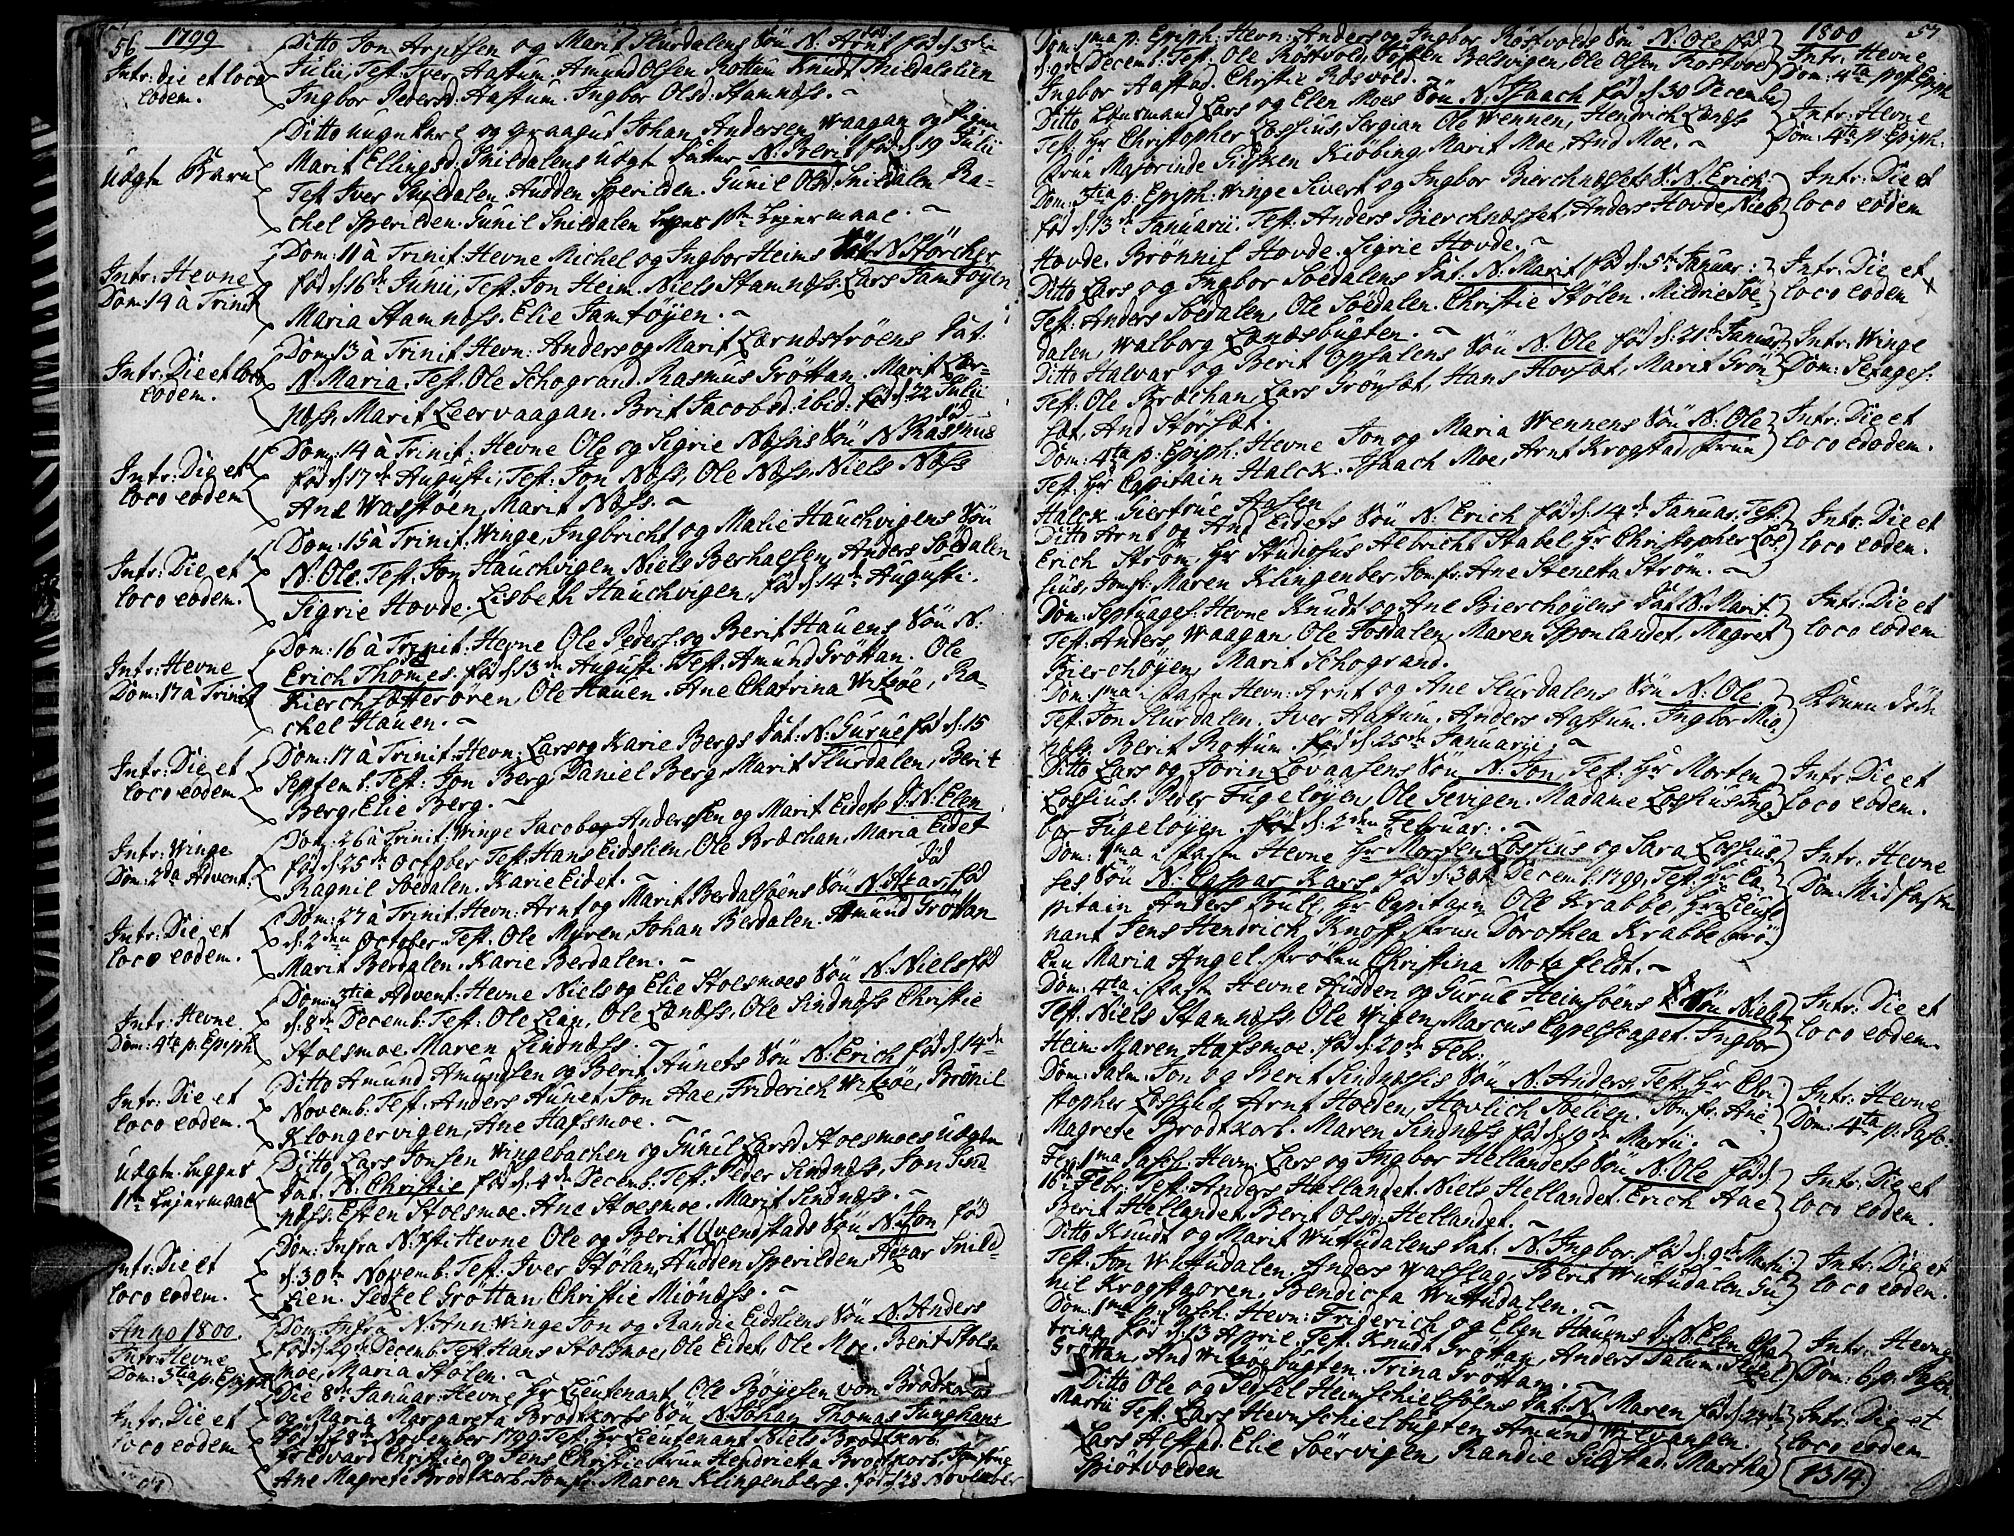 56 1799
Intr: die et loco
eodem.
Ditto Jon Arntsen og Marit Slurdalens Sön N: Arnt fød d: 3die
Julii, Test: Iver Aastum. Amund Olsen Rottum Knudt Snildalslien
Ingbor Pedersd: Aastum. Ingbor Olsd: Stamnæss.
Uægte Barn
Ditto ungekarl og Johan Andersen Waagan og Pigen
Marit Ellingsd: Snildalens Uægt: Datter N: Berit fød d: 19 Julii
Test: Iver Snildalen, Hudden Sperilden. Gunil Olsd Snildalen Ra-
chel Sperilden. Gunil Snildalen 1ste Lejermaal.
Intr: Hevne
Dom: 14 à Trinit
Dom: 11 à Trinit: Hevne Michel og Ingbor Heims Dat: N: Störcher
fød d: 16de Junii, Test: Jon Heim. Niels Stamnæss. Lars Tamtöyen
Maria Stamness. Elie Tamtöyen.
Intr: Die et loco
eodem.
Dom: 13 à Trinit: Hevn: Anders og Marit Lernæströens Dat:
N: Maria. Test: Ole Schogrand. Rasmus Gröttan. Marit Lær-
næss Marit Leervaagan. Brit Jacobsd: ibid: fød d: 22 Julii
Intr: Die et
loco eodem
Dom: 14 à Trinit: Hevne Ole og Sigrie Næssis Sön N: Rasmus
fød d: 17de Augusti, Test: Jon Næss, Ole Næss. Niels Næss
Ane Wasstöen, Marit Næss.
Intr: Die et
loco eodem.
Dom: 15 à Trinit: Winge, Ingbricht og Malie Hauchvigens Sön
N: Ole. Test: Jon Hauchvigen Niels Berhaelsen, Anders Soedalen
Sigrie Hovde. Lisbeth Hauchvigen, fød d: 14de Augusti.
Intr: Hevne
Dom: 17 à Trinit
Dom: 16 à Trinit: Hevne Ole Peders: og Berit Hauens Sön N:
Erich Thomes. fød d: 13de Augusti. Test: Amund Gröttan. Ole
Kierchsætterören, Ole Hauen. Ane Chatrina Witsöe, Ra-
chel Hauen.
Intr: Die et
loco eodem
Dom: 17 à Trinit: Hevn: Lars og Karie Bergs Dat: N: Gurue fød d: 15
Septemb: Test: Jon Berg, Daniel Berg, Marit Slurdalen, Berit
Berg, Elie Berg.
Intr: Winge
Dom: 2da Advent:
Dom: 26 à Trinit: Winge Jacob Anderssen og Marit Eidets D: N: Elen
fød d: 25de October Test: Hans Eidslien, Ole Brechan, Maria Eidet
Ragnil Soedalen. Karie Eidet.
Intr: Die et
loco eodem.
Dom: 27 à Trinit: Hevn: Arnt og Marit Berdalsöens Sön N: Azar fød
d: 2den October. Test: Ole Myren, Johan Berdalen. Amund Gröttan
Marit Berdalen. Karie Berdalen.
Intr: Hevne
Dom: 4ta p: Epiph
Dom: 3tia Advent: Hevne Niels og Elie Stolsmoes Sön N: Niels fød
d: 8de Decemb: Test: Ole Lian, Ole Lændss, Ole Sindnæss Christie
Stolsmoe. Maren Sindnæss.
Intr: Die et
loco eodem.
Ditto Amund Amundsen og Berit Hunets Sön N: Erich fød d: 14de
Novemb: Test: Anders Hunet, Jon Aae, Friderich Witsöe, Brönil
Klongervigen, Ane Hafsmoe.
Uægte
11te Lejermaal
Ditto Lars Jonsen Wingebachen og Gunil Larsd Stolsmoes uægte
Dat: N: Christie fød d: 4de Decemb: Test: Peder Sindnæss, Jon Sind
næss. Esten Stolsmoe. Ane Stolsmoe. Marit Sindnæss.
Intr: Die et
loco eodem.
Dom: Infra N: Xsti Hevne Ole og Berit Qvenstads Sön N: Jon fød
d: 30te Novemb: Test: Iver Stølan, Hudden Sperilden, Azar Snild-
lien. Sedzel Gröttan, Christie Miönæss.
Anno 1800.
Intr: Hevne
Dom: 3tia p: Epiph
Dom: Infra N: Ann: Winge Jon og Randie Eidsliens Sön N: Anders
fød d: 29de Decemb: Test: Hans Stolsmoe, Ole Eidet, Ole Moe. Berit Stols
moe, Maria Stölen.
Intr: Die et
loco eodem
Die 8de Januar: Hevne Hr Lieutenant Ole Böyesen von Brodkorb
og Maria Margareta Brodtkorbs Sön N: Johan Thomas Junghans
fød d: 28de November 1799. Test: Hr Lieutenant Niels Brodtkorb.
Hr Edvard Christie og Jens Christie Frun Hendricka Brodtkorb, Jomfrue
Ane Magrete Brodtkorb. Jomfr: Maren Klingenberg. fød d: 28 November

1800 57
Dom: 1ma p: Epiph: Hevn: Anders og Ingbor Röstvolds Sön N: Ole fød
d: Decemb: Test: Ole Röstvold, Östen Belsvigen, Ole Olsen Röstvold
Ingbor Aastad. Christie Röstvold.
Intr: Hevne
Dom: 4ta post Epiph
Ditto Lensmand Lars og Elen Moes Sön N: Isaach fød d: 30 Decembr
Test: Hr Christopher Lossius, Sergian Ole Wennen, Hendrich
Frun Majorinde Kiöbing, Marit Moe, And Moe.
Intr: Hevne
Dom: 4ta p: Epiph:
Dom: 3tia p: Epiph: Winge Sivert og Ingbor Bierchnæssets S: N: Erich
fød d: 13de Januarii. Test: Anders Bierchnæsset, Anders Hovde, Niels
Hovde. Brönnil Hovde. Sigrie Hovde.
Intr: Die et
loco eodem
Ditto Lars og Ingbor Soedalens Dat: N: Marit fød d: 5te Januar:
Test: Anders Söedalen, Ole Söedalen. Christie Stölen. Mildrie Söe
dalen, Walborg Lændsbugten.
Intr: Die et
loco eodem
Ditto Halvar og Berit Opsalens Sön N: Ole fød d: 21de Januar
Test: Ole Brechan, Lars Grönset, Hans Hovset, Marit Grön
set, And Störset.
Intr: Winge
Dom: Sexages:
Dom: 4ta p: Epiph: Hevne Jon og Maria Wennens Sön N: Ole
Test: Hr Capitain Halck. Isaach Moe, Arnt Krogstad, Frun
Halck. Giertrue Aasen
Intr: Die et
loco eodem.
Ditto Arnt og And Eidets Sön N: Erich fød d: 14de Januar: Test:
Erich Ström, Hr Studiosus Albricht Stabel Hr Christopher Los
sius, Jomfr: Maren Klingenber, Jomfr: Ane Steneta Ström.
Intr: Die et
loco eodem.
Dom: Septuages: Hevne Knudt og Ane Bierchöyens Dat: N: Marit
Test: Anders Waagan, Ole Fosdalen, Maren Sponlandet, Magret
Bierchöyen, Marit Schogrand.
Intr: Die et
loco eodem
Dom: 1ma i Faste Hevn: Arnt og Ane Slurdalens Sön N: Ole
Test: Jon Slurdalen. Iver Aastum. Anders Aastum. Ingbor
næss. Berit Rottum. fød d: 25de Januarii.
Konen død
Ditto Lars og Jorin Lovaasens Sön N: Jon, Test: Hr Morten
Lossius. Peder Fugelöyen, Ole Gevigen. Madame Lossius, Ing
bor Fugelöyen. fød d: 2den Februar:
Intr: Die et
loco eodem.
Dom: 1ma i Faste Hevne Hr Morten Lossius og Sara Lossiu
ses Sön N: Caspar Kars fød d: 30te Decemb: 1799, Test: Hr Ca
pitain Anders Bull, Hr Capitain Ole Krabbe. Hr Lieute
nant Jens Hendrich Knoff, Frun Dorothea Krabbe, Frö-
ken Maria Angel. Fröken Christina Motzfeldt.
Intr: Hevne
Dom: Midfaste
Dom: 4ta i Faste Hevne Hudden og Gurue Heimsöens Sön Niels
Test: Niels Stamnæss, Ole Witsen, Marcus Ingbor
Heim: Maren Hafsmoe. fød d: 20de Febr:
Intr: Die et
loco eodem.
Dom: Palm: Jon og Berit Sindnæssis Sön N: Anders. Test: Hr Chri-
stopher Lossius, Arnt Hoeden, Havlich Soelien. Jomfr: Ane
Magrete Brodtkorb. Maren Sindnæss fød d: 9de Martii.
Intr: Hevne
Dom: 4ta p: Pasc:
Fer: 1ma Pasch: Hevn: Lars og Ingbor Hellandets Sön N: Ole fød d:
16de Febr: Test: Anders Hellandet. Niels Hellandet. Erich Aae
Berit Hellandet, Berit Olsd: Hellandet.
Intr: Die et
loco eodem.
Ditto Knudt og Marit Wuttudalens Dat: N: Ingbor fød d: 9de Martii
Test: Jon Wuttudalen. Anders Waslag, Berit Wuttudalen Gu
nil Krogstaoren, Bendicta Wuttudalen.
Intr: Die et
loco eodem.
Dom: 1ma p: Pasch: Hevn: Friderich og Elen Hauens D: N: Elen Cha
trina fød d: 13 April. Test: Knudt Gröttan, Anders Salum.
Gröttan, And Witsöebugten. Trina Gröttan.
Intr: Hevne
Dom: 6 p: Pasch
Ditto Ole og Sedsel Heimschielsöens Dat: N: Maren fød d:
Martii Test: Lars Hevnschielbugten, Amund Wilvangen.
Lars Aestad. Elie Soervigen, Randie Gilstad. Martha
Spiötvolden
Intr: Die et
loco eodem.
1314